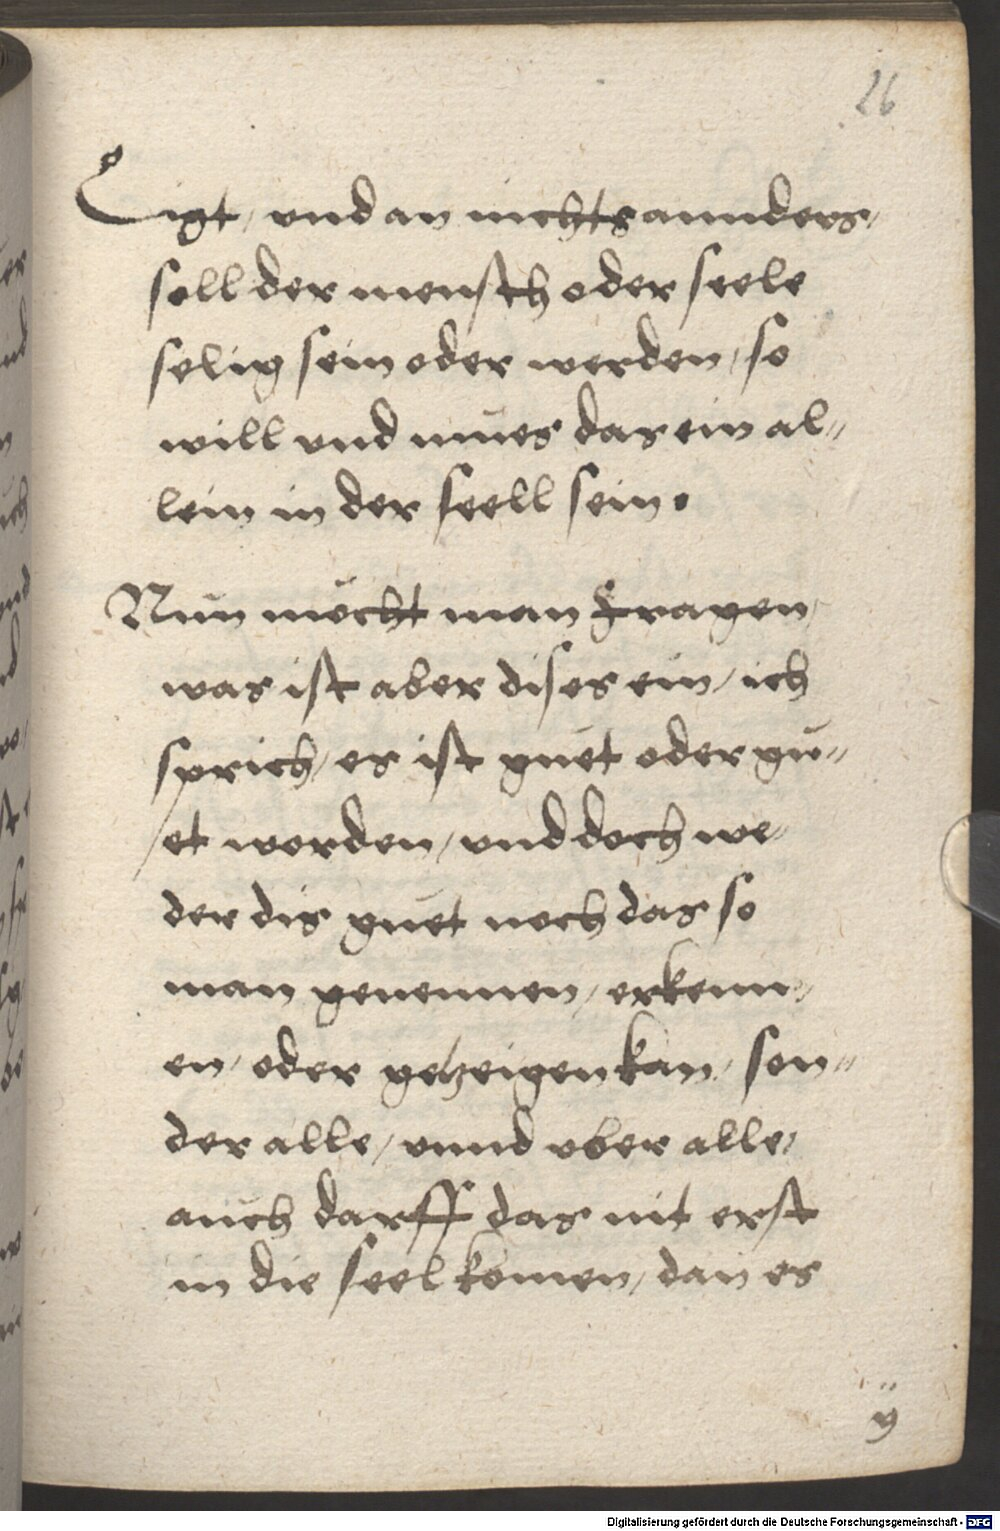 26
Ligt / vnd an nichts annders /
soll der mensch oder seele
selig sein oder werden / so
will vnd mues das ein al=
lein in der seell sein.
Nun möcht man fragen /
was ist aber dises ein / ich
sprich / es ist guet oder gu=
et worden / vnd doch we
der dis guet noch das so
man genennen / erkenn=
en / oder gezeigen kan / son=
der alle / vnnd vber alle /
auch darff das nit erst
in die seel komen / dan es
ÿ
Digitalisierung gefördert durch die Deutsche Forschungsgemeinschaft - DFG